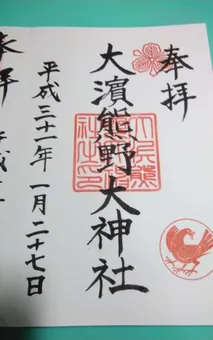 奉拝
大濱熊野大神社
平成三十一年一月二十七日
奉拝